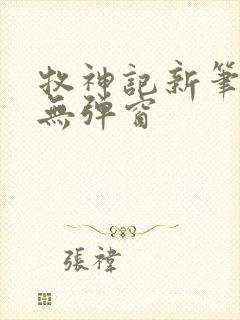 牧神記新筆
無彈窗
張褘